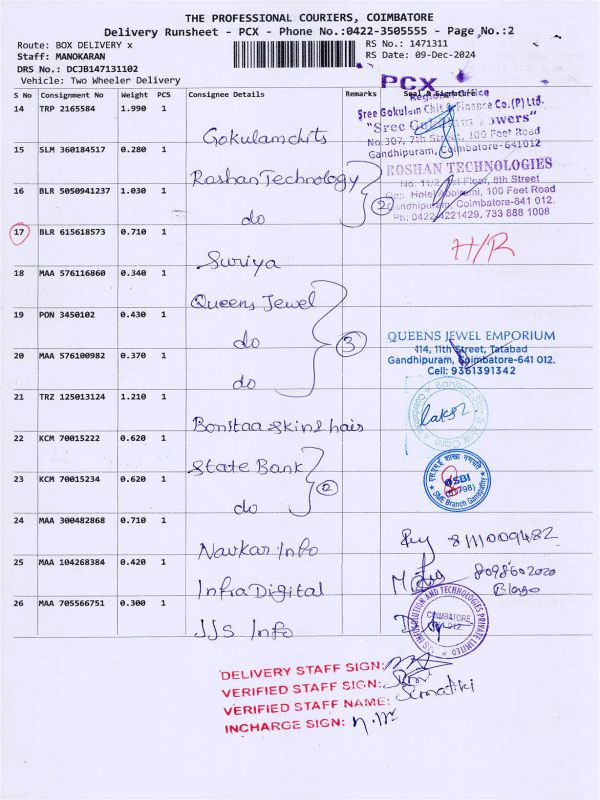 THE PROFESSIONAL COURIERS, COIMBATORE
Delivery Runsheet - PCX - Phone No.:0422-3505555 - Page No.:2
Route: BOX DELIVERY x
RS No.: 1471311
Staff: MANOKARAN
RS Date: 09-Dec-2024
DRS No.: DCJB147131102
Vehicle: Two Wheeler Delivery
PCX
S No Consignment No Weight PCS Consignee Details Remarks Seal & Signature
14 TRP 2165584 1.990 1 Gokulamchits
Sree Gokulam Chit & Finance Co.(P) Ltd.
No.307, 7th Street, 100 Feet Road
Gandhipuram, Coimbatore-641012
15 SLM 360184517 0.280 1 Roshan Technology
ROSHAN TECHNOLOGIES
8th Street
100 Feet Road
Gandhipuram, Coimbatore-641 012.
Ph: 0422-4221429, 733 888 1008
16 BLR 5050941237 1.030 1 do
2
17 BLR 615618573 0.710 1 Suriya
H/R
18 MAA 576116860 0.340 1 Queens Jewel
19 PON 3450102 0.430 1 do
3
QUEENS JEWEL EMPORIUM
114, 11th Street, Tatabad
Gandhipuram, Coimbatore-641 012.
Cell: 9361391342
20 MAA 576100982 0.370 1 do
21 TRZ 125013124 1.210 1 Bonitaa skin & hair
22 KCM 70015222 0.620 1 State Bank
23 KCM 70015234 0.620 1 do
2
SBI
SME Branch Ganapathy
24 MAA 300482868 0.710 1 Navkar Info
8111009482
25 MAA 104268384 0.420 1 Infra Digital
8098602020
26 MAA 705566751 0.300 1 JJS Info
COIMBATORE
DELIVERY STAFF SIGN:
VERIFIED STAFF SIGN:
VERIFIED STAFF NAME:
INCHARGE SIGN: